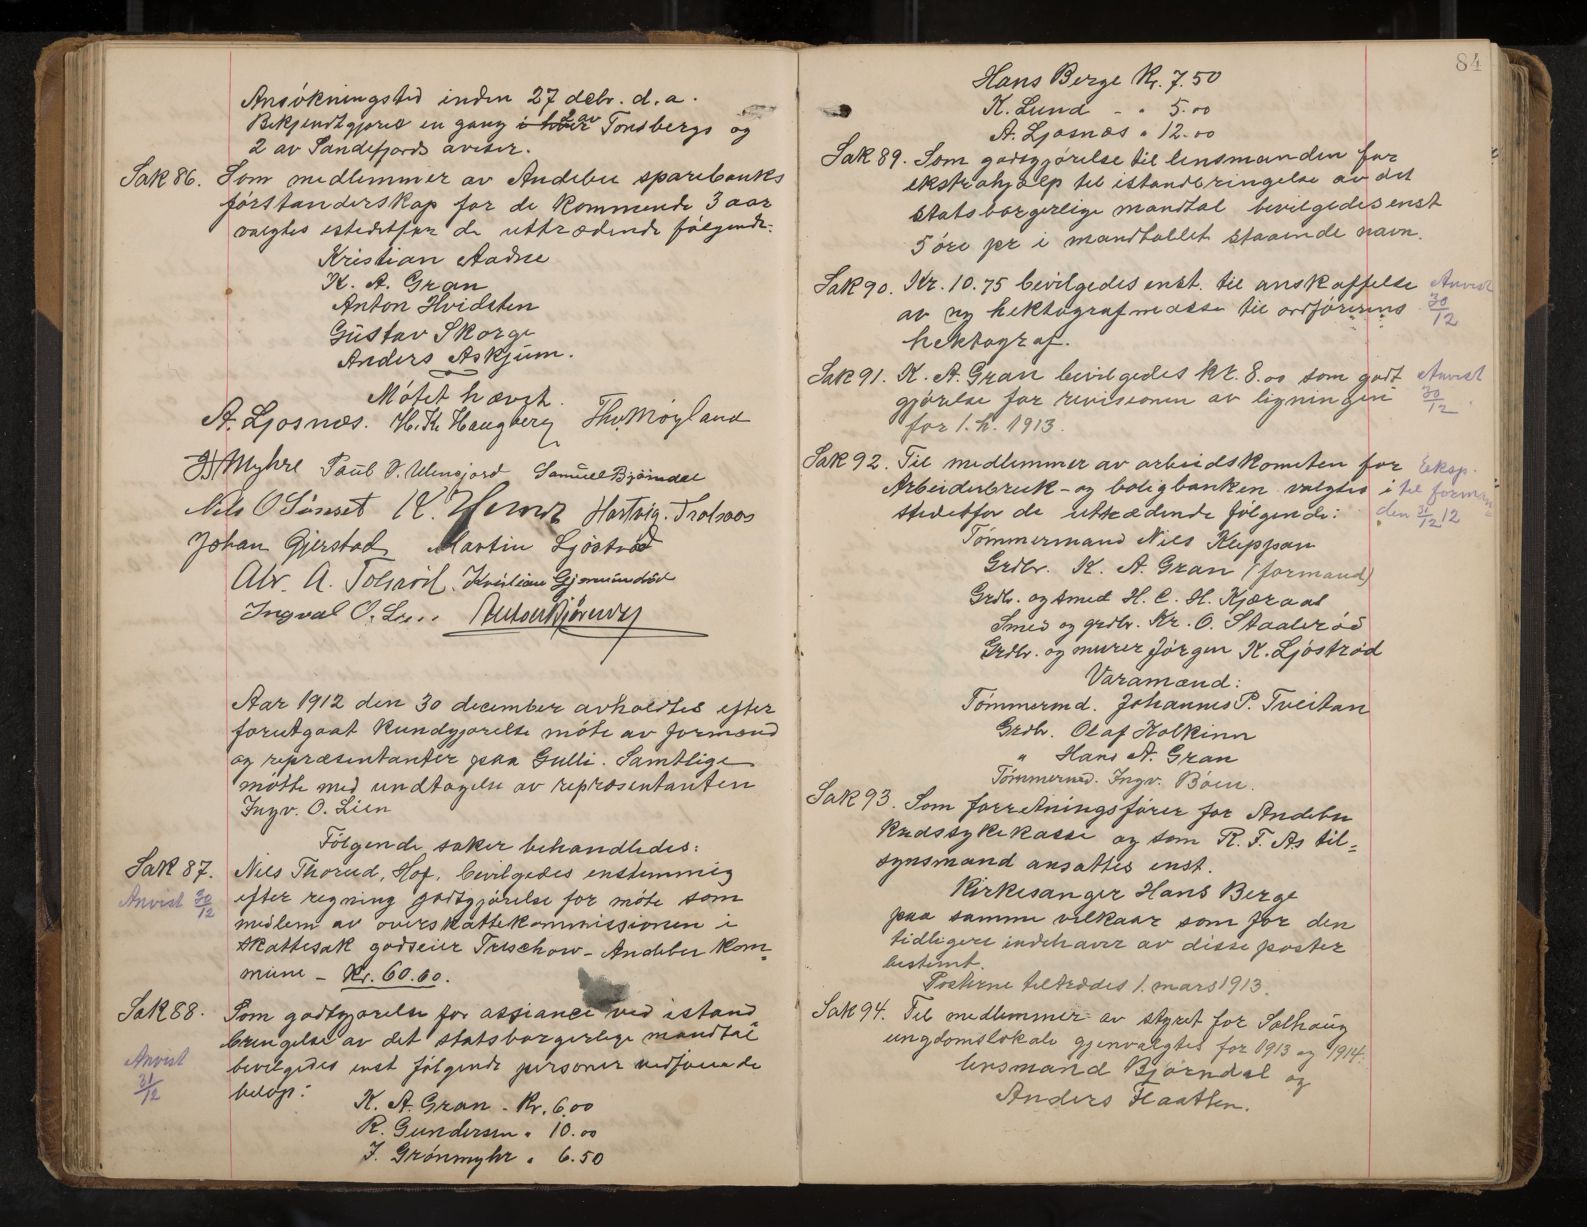 Ansökningstid inden 27 debr. d. a.
Bekjendtgjøres en gang i hver 2 av Tønsbergs og
2 av Sandefjords aviser.
Sak 86. Som medlemmer av Andebu sparebanks
förstanderskap for de kommende 3 aar
valgtes istedetfor de uttrædende følgende:
Kristian Aadne
K. A. Gran
Anton Hvidsten
Gustav Skorge
Anders Askjum.
Mötet hævet.
A. Ljosnæs. H. K. Haugberg Thv. Møyland
Myhre Paul V. Ulensjord Samuel Bjørndal
Nils O Sunset K. Hartvig Trolsaas
Johan Gjerstad Martin Ljöströd
Alv. A. Tolsröd. Kristian Gjermundröd
Ingval O. Lien Anton Bjørndal
Aar 1912 den 30 december avholdtes efter
forutgaat kundgjørelse möte av formænd
og repræsentanter paa Gulli. Samtlige
mötte med undtagelse av repræsentanten
Ingv. O. Lien
Fölgende saker behandledes:
Sak 87. Nils Thorud, Hof, bevilgedes enstemmig
Anvist 30/12 efter regning godtgjörelse for möte som
medlem av overskattekommissionen i
skattesak godseier Treschow - Andebu kom-
mune - Kr. 60.60.
Sak 88. Som godtgjørelse for assiance ved istand
bringelse av det statsborgerlige mandtal
Anvist 31/12 bevilgedes enst følgende personer vedføiende
belöp:
K. A. Gran - Kr. 6.00
R. Gundersen " 10.00
J. Grönmyhr " 6.50
84
Hans Berge Kr. 7.50
K. Lund - " 5.00
A. Ljosnæs " 12.00
Sak 89. Som godtgjörelse til lensmanden for
ekstrahjælp til istandbringelse av det
statsborgerlige mandtal bevilgedes enst
5 öre pr i mandtallet staaende navn.
Sak 90. Kr. 10.75 bevilgedes enst. til anskaffelse Anvist
av ny hektografmasse til ordförerens 30/12
hektograf.
Sak 91. K. A. Gran bevilgedes kr. 8.00 som godt Anvist
gjörelse for revisionen av ligningen 30/12
for 1. h. 1913.
Sak 92. Til medlemmer av arbeidskomiteen for Eksp.
Arbeiderbruk- og boligbanken valgtes i til formann
stedetfor de uttrædende følgende: den 31/12 12
Tömmermand Nils Kleppan
Grdbr. K. A. Gran (formand)
Grdb. og smed H. C. H. Kjæraas
Smed og grdbr. Kr. O. Staaleröd
Grdbr. og murer Jörgen K. Ljöströd
Varamænd:
Tömmermd. Johannes P. Tveitan
Grdb. Olaf Holkinn
" Hans A. Gran
Tömmermd. Ingv. Böen.
Sak 93. Som forretningsförer for Andebu
kredssykekasse og som R. T. As til=
synsmand ansattes enst.
Kirkesanger Hans Berge
paa samme vilkaar som for den
tidligere indehaver av disse poster
bestemt.
Posterne tiltrædes 1. mars 1913.
Sak 94. Til medlemmer av styret for Solhaug
ungdomslokale gjenvalgtes for 1913 og 1914:
lensmand Bjørndal og
Anders Flaatten.